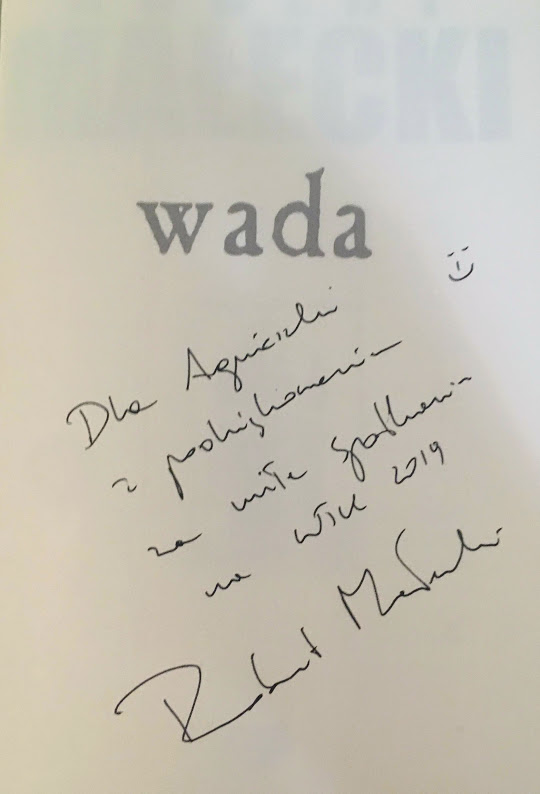 MAŁECKI
wada
Dla Agnieszki
z podziękowaniem
za miłe spotkanie
na WTK 2019
Robert Małecki